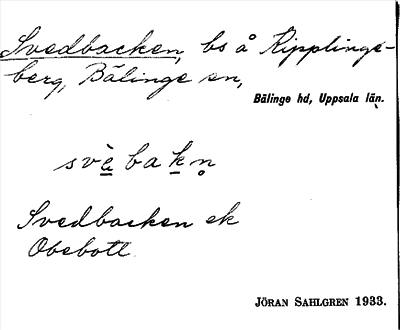 Svedbacken, bs å Ripplinge-
berg, Bälinge sn,
Bälinge hd, Uppsala län.
svè̱ baḵn̥
Svedbacken ek
Obebott.
JÖRAN SAHLGREN 1933.